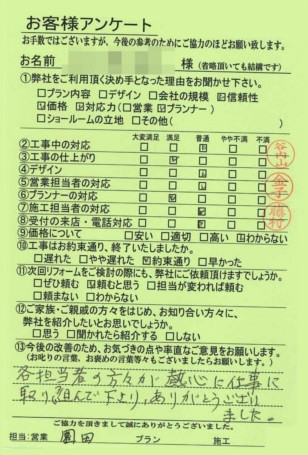 お客様アンケート
お手数ではございますが、今後の参考のためにご協力のほどお願い致します。
お名前 様 (省略頂いても結構です)
①弊社をご利用頂く決め手となった理由をお聞かせ下さい。
□プラン内容 □デザイン □会社の規模 ☑信頼性
☑価格 ☑対応力(□営業 ☑プランナー)
□ショールームの立地 □その他( )
大変満足 満足 普通 やや不満 不満
②工事中の対応 □ □ ☑ □ □
③工事の仕上がり □ ☑ □ □ □
④デザイン □ □ ☑ □ □
⑤営業担当者の対応 □ □ ☑ □ □
⑥プランナーの対応 □ ☑ □ □ □
⑦施工担当者の対応 □ □ ☑ □ □
⑧受付の来店・電話対応 □ □ ☑ □ □
⑨価格について □安い □適切 □高い ☑わからない
⑩工事はお約束通り、終了いたしましたか。
□遅れた □やや遅れた ☑約束通り □早かった
⑪次回リフォームをご検討の際にも、弊社にご依頼頂けますでしょうか。
□ぜひ頼む ☑頼むと思う □担当が変われば頼む
□頼まない □わからない
⑫ご家族・ご親戚の方々をはじめ、お知り合い方々に、
弊社を紹介したいとお思いでしょうか。
□思う □聞かれたら紹介する □しない
⑬今後の改善のため、お気づきの点や率直なご意見をお願いします。
(お叱りの言葉、お褒めの言葉等がございましたらお願いします。)
各担当者の方々が熱心に仕事に
取り組んで下より、ありがとうござい
ました。
ご協力を頂きまして誠にありがとうございました。
担当:営業 園田 プラン 施工